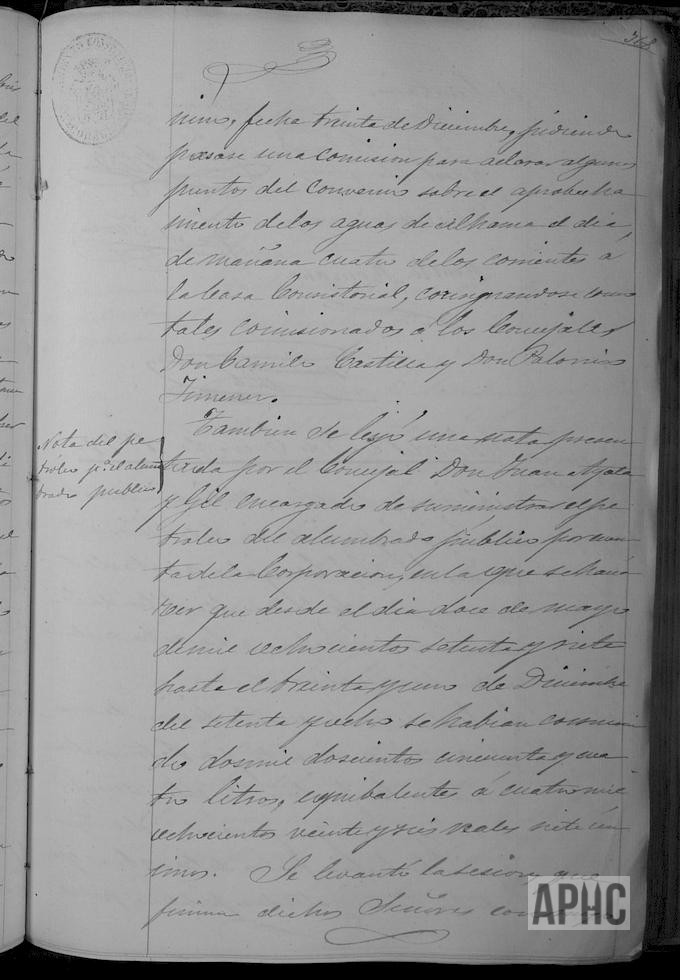 368
nino, fecha treinta de Diciembre, pidiendo
pasase una comision para aclarar algunos
puntos del convenio sobre el aprobecha
miento de las aguas de Alhama el dia
de mañana cuatro de los corrientes á
la Casa Consistorial, consignandose como
tales comisionados á los Concejales
Don Camilo Castilla y Don Polonio
Jimenez.
Tambien se leyó una nota presen
tada por el Concejal Don Juan Ayala
y Gil encargado de suministrar el pe
troleo del alumbrado público por cuen
ta de la Corporacion, en la que se hacia
ver que desde el dia doce de mayo
de mil ochocientos setenta y siete
hasta el treinta y uno de Diciembre
del setenta y ocho se habian consumi
do dosmil doscientos cincuenta y cua
tro litros, equibalentes á cuatro mil
ochocientos veinte y seis reales siete cén
timos. Se levantó la sesion, que
firman dichos Señores
Nota del pe
tróleo pª. el alum
brado publico
APHC